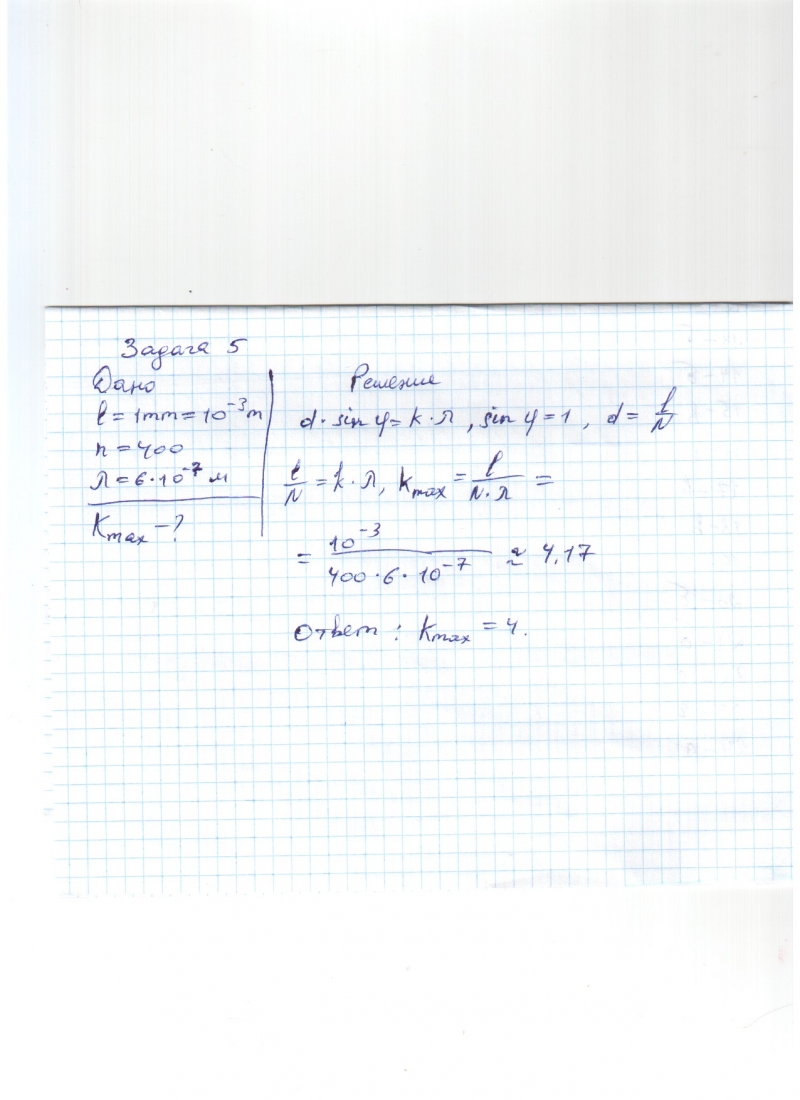 Задача 5
Дано
l = 1mm = 10⁻³ m
n = 400
λ = 6·10⁻⁷ м
Kmax – ?
Решение
d · sin φ = k · λ , sin φ = 1 , d = l/N
l/N = k · λ, kmax = l/(N · λ) =
= 10⁻³/(400 · 6 · 10⁻⁷) ≈ 4,17
Ответ : Kmax = 4.